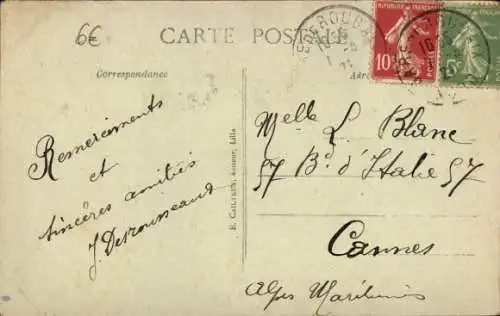 6€
CARTE POSTALE
Correspondance
RÉPUBLIQUE FRANÇAISE
10
POSTES
15
Remerciments
et
sincères amitiés
J. Desrousseaux
E. CAILTEUX, Lille
Melle L. Blanc
57 Bd. d'Italie 57
Cannes
Alpes Maritimes